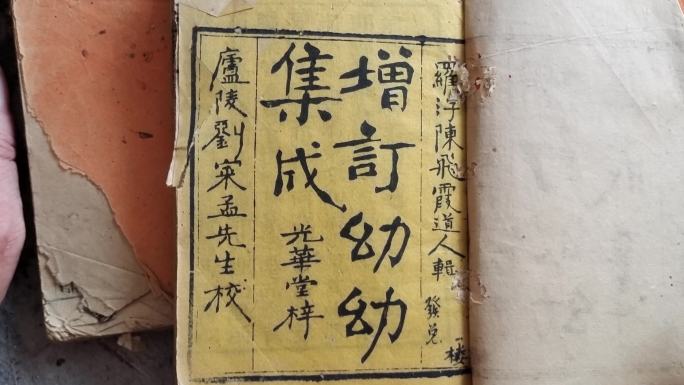 羅浮陳飛霞道人輯
發兌
增訂幼幼
集成
光華堂梓
廬陵劉宲孟先生校